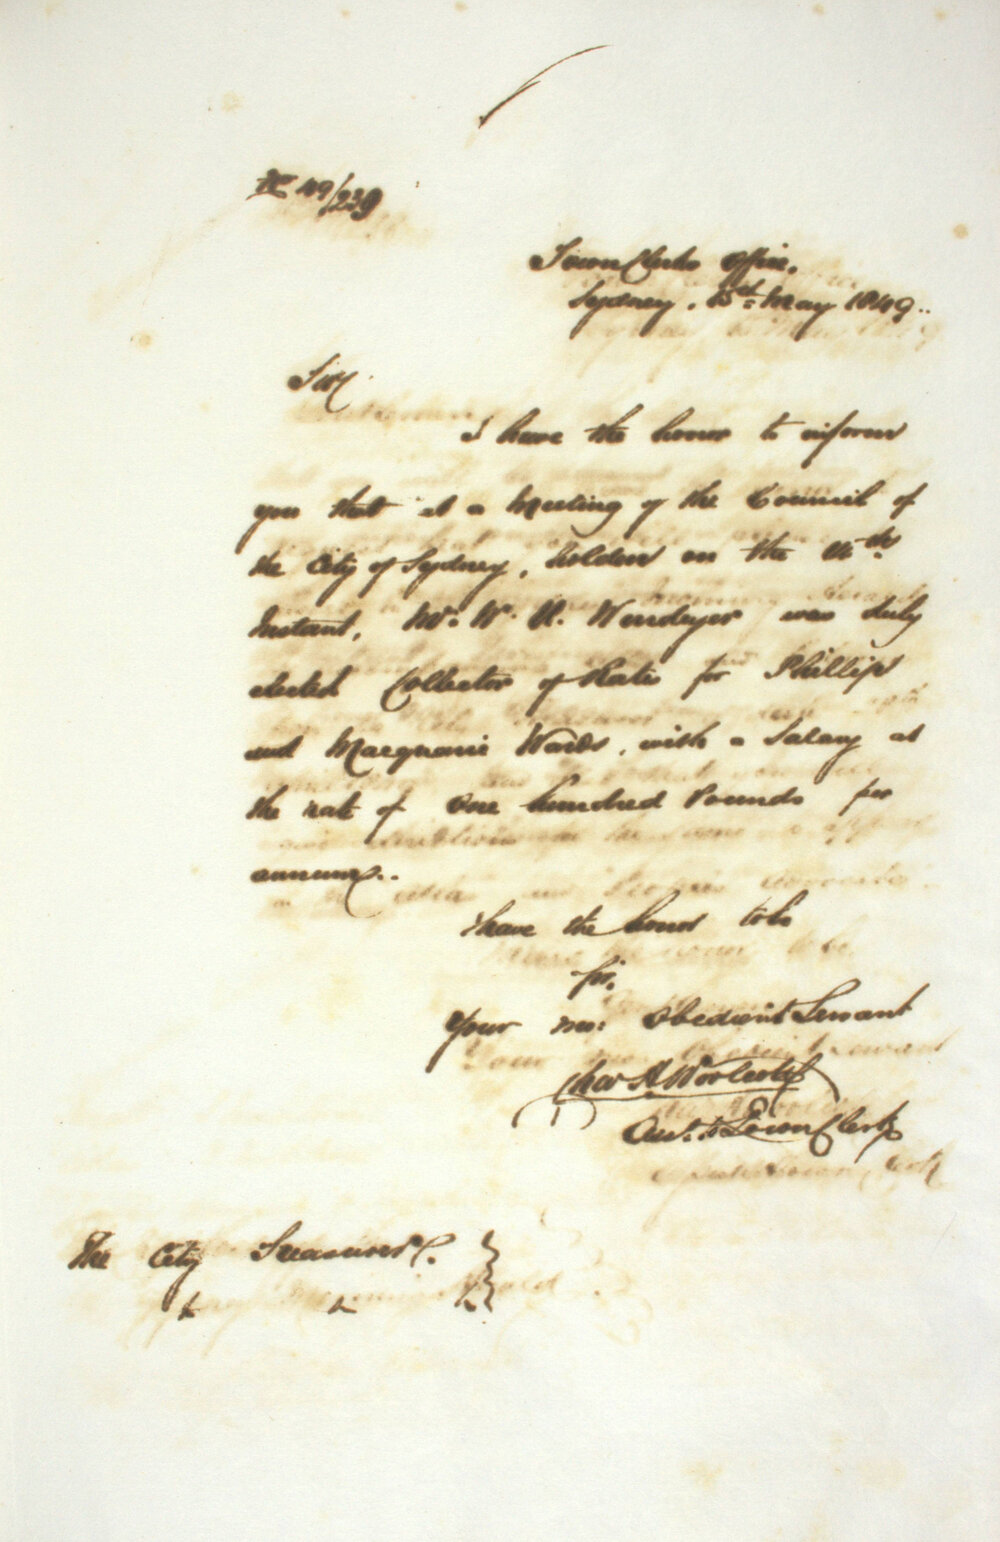 No 49/239
Town Clerks Office,
Sydney, May 1849..
Sir,
I have the honor to inform
you that at a Meeting of the Council of
the City of Sydney, holden on the
Instant, Mr. W. H. Windeyer was duly
elected Collector of Rates for Phillip
and Macquarie Wards, with a Salary at
the rate of One hundred Pounds per
annum..
I have the honor to be
Sir,
Your mo: Obedient Servant
Chas H Woolcott
Asst. to Town Clerk
The City Treasurer.